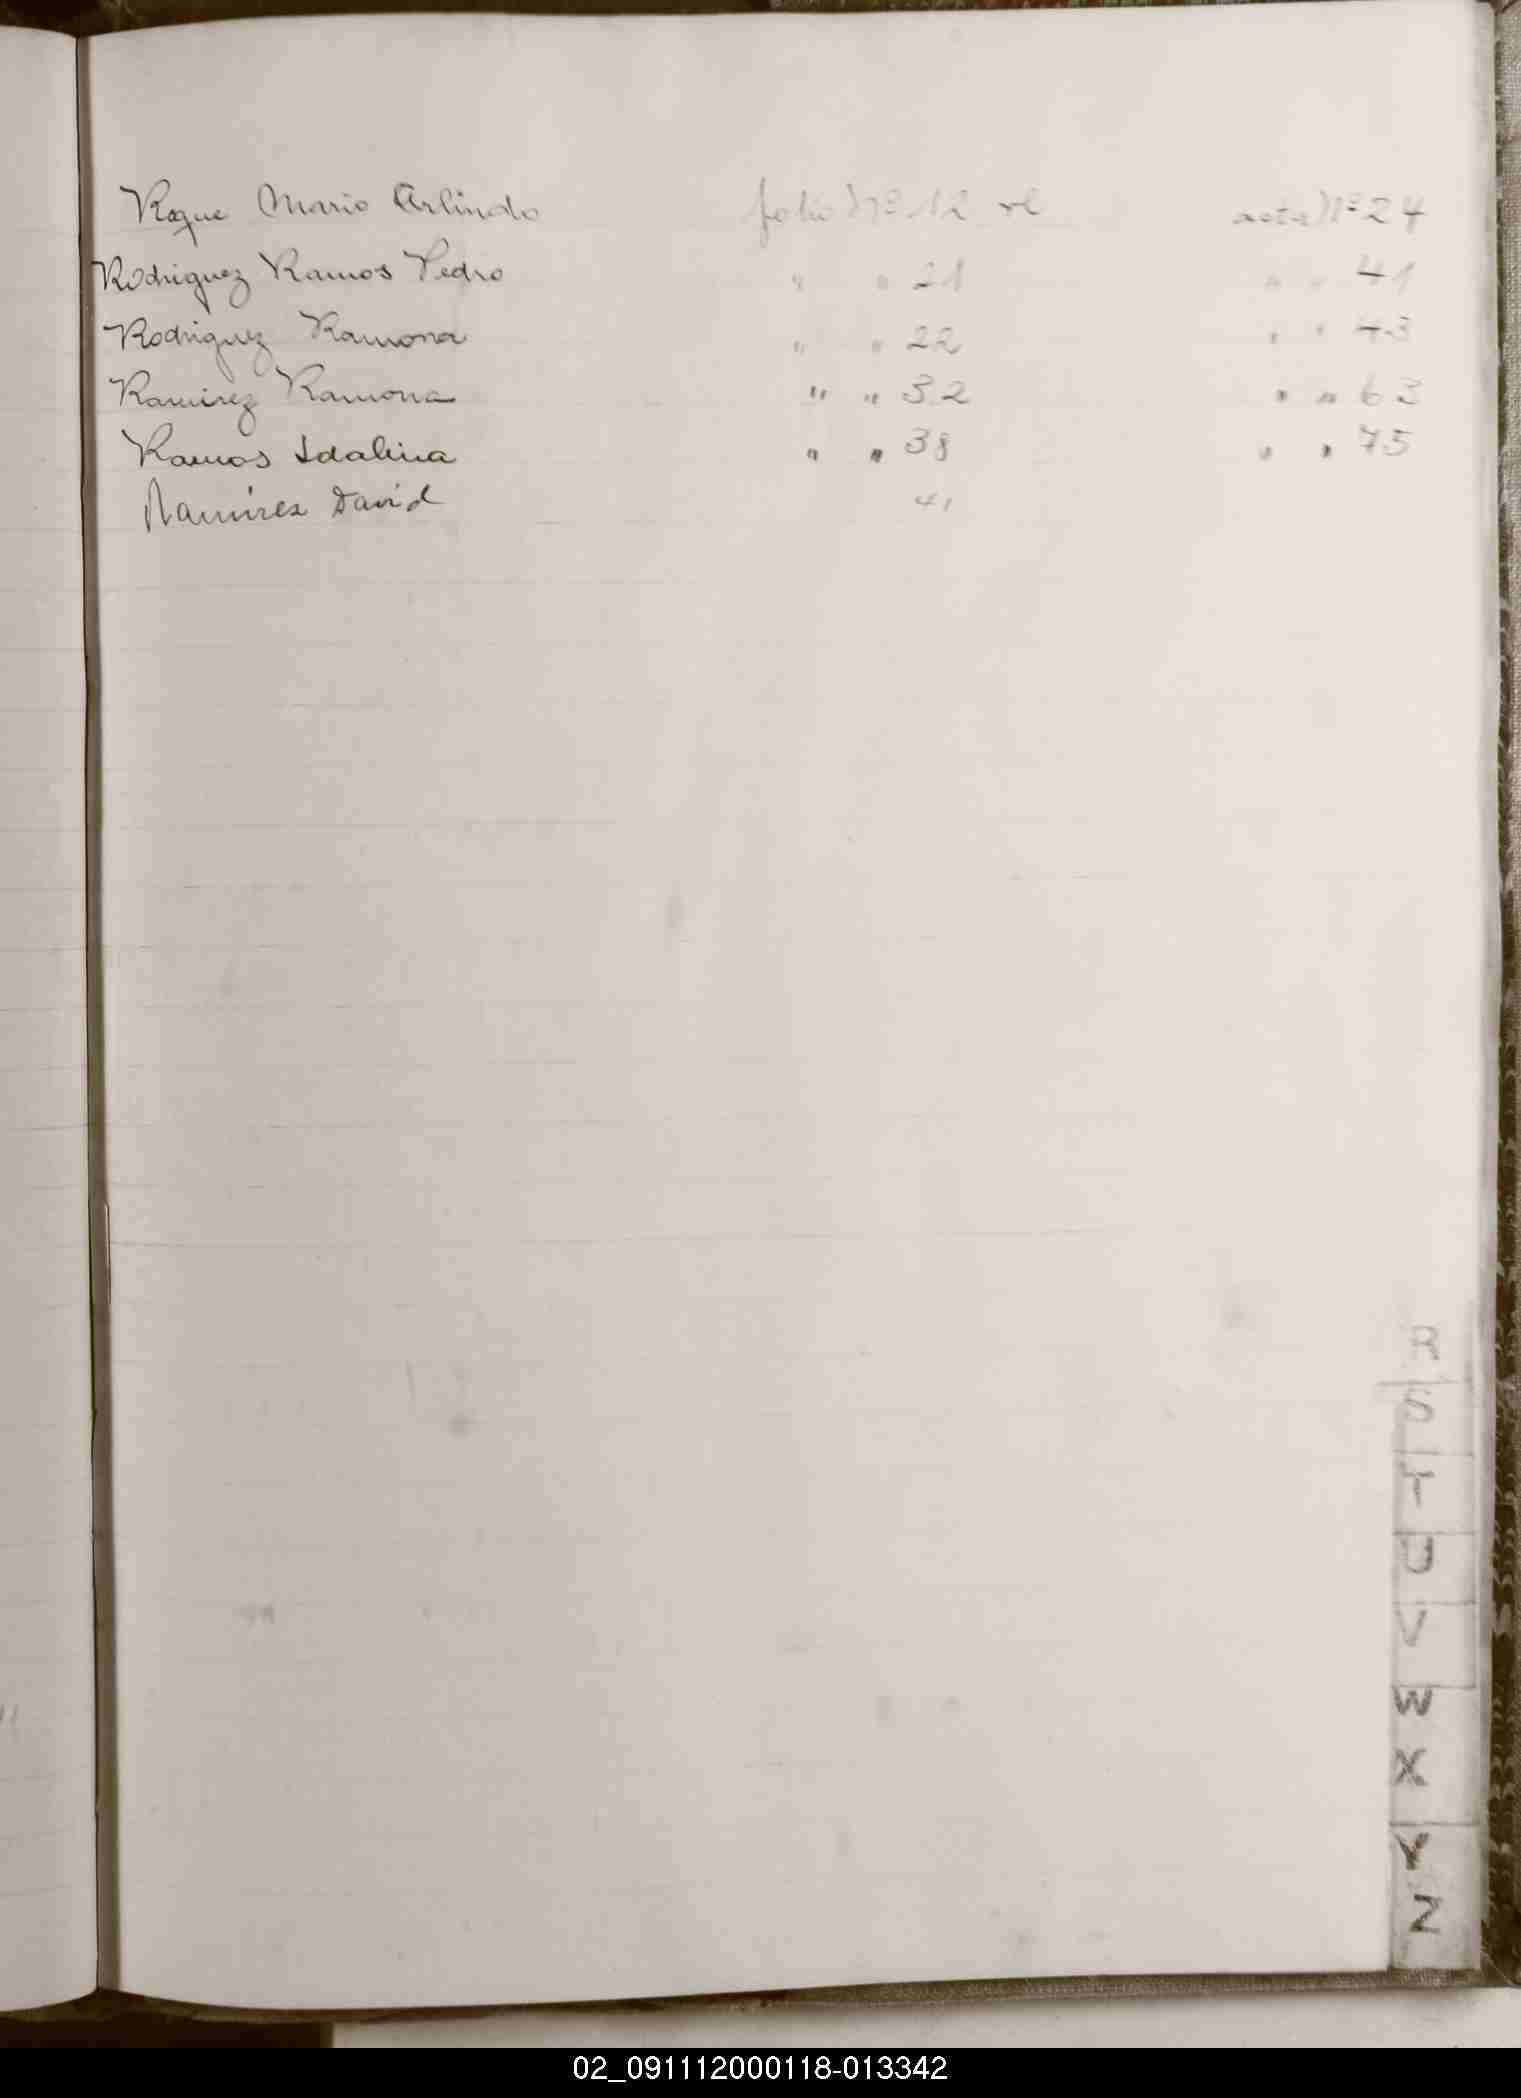 Roque Mario Arlindo folio Nº 12 vl acta Nº 24
Rodriguez Ramos Pedro " " 21 " " 41
Rodriguez Ramona " " 22 " " 43
Ramirez Ramona " " 32 " " 63
Ramos Idalina " " 38 " " 75
Ramirez David 41
R
S
T
U
V
W
X
Y
Z
02_091112000118-013342